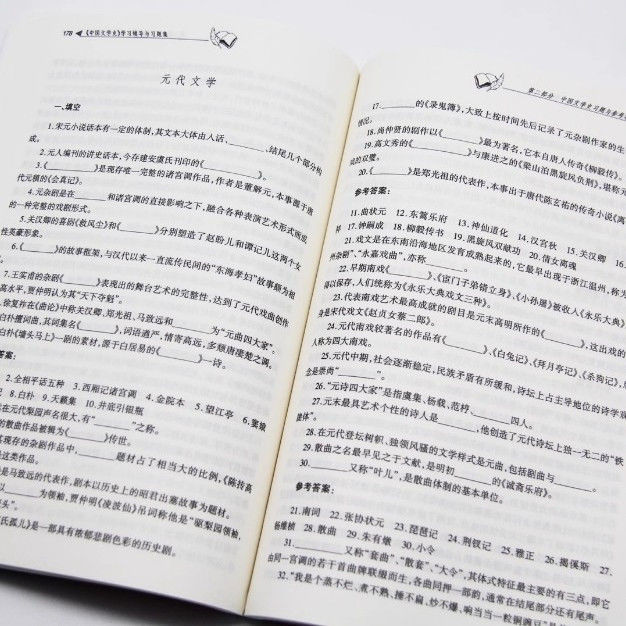 178 ◀ 《中国文学史》学习辅导与习题集
元代文学
一、填空
1.宋元小说话本有一定的体制,其文本大体由入话、______、结尾几个部分构
成。
2.元人编刊的讲史话本,今存建安虞氏刊印的(______)。
3.(______)是现存唯一完整的诸宫调作品,作者是董解元,本事源于唐
代元稹的《会真记》。
4.元杂剧是在______和诸宫调的直接影响之下,融合各种表演艺术形式而成
的一种完整的戏剧形式。
5.关汉卿的喜剧《救风尘》和(______)分别塑造了赵盼儿和谭记儿这两个女
性英豪形象。
6.(______)的故事框架,与汉代以来一直流传民间的“东海孝妇”故事颇为相
7.王实甫的杂剧(______)表现出的舞台艺术的完整性,达到了元代戏曲创作
高水平,贾仲明认为其“天下夺魁”。
徐复祚在《曲论》中称关汉卿、郑光祖、马致远和______为“元曲四大家”。
白朴擅词曲,其词集名(______),词语遒严,情寄高远,多顺唐凄楚之调。
白朴《墙头马上》一剧的素材,源于白居易的(______)一诗。
答案:
2.全相平话五种 3.西厢记诸宫调 4.金院本 5.望江亭 6.窦娥
8.白朴 9.天籁集 10.井底引银瓶
在元代梨园声名很大,有“______”之称。
的散曲作品被辑为(______)传世。
其现存的杂剧作品中,______题材占了相当大的比例,《陈抟高
是这类作品。
是马致远的代表作,剧本以历史上的昭君出塞故事为题材。
以______为领袖,贾仲明《凌波仙》吊词称他是“驱梨园领袖,
头”。
氏孤儿》是一部具有浓郁悲剧色彩的历史剧。
第二部分 中国文学史习题与参考
17.______的《录鬼簿》,大致上按时间先后记录了元杂剧作家的生
情况。
18.尚仲贤的剧作以(______)最为著名,它本自唐人传奇《柳毅传》。
19.高文秀的(______)与康进之的《梁山泊黑旋风负荆》,堪称元
的双璧。
20.(______)是郑光祖的代表作,本事出于唐代陈玄祐的传奇小说《离
参考答案:
11.曲状元 12.东篱乐府 13.神仙道化 14.汉宫秋 15.关汉卿
17.钟嗣成 18.柳毅传书 19.黑旋风双献功 20.倩女离魂
21.戏文是在东南沿海地区发育成熟起来的,它最早出现于浙江温州,称为
州杂剧”、“永嘉戏曲”,亦称______。
22.早期南戏(______)、《宦门子弟错立身》、《小孙屠》被收入《永乐大典》
得以保存,人们统称为《永乐大典戏文三种》。
23.代表南戏艺术最高成就的剧目是元末高明所作的(______),这出戏的
身是宋代戏文《赵贞女蔡二郎》。
24.元代南戏较著名的作品有(______)、《白兔记》、《拜月亭记》、《杀狗记》,
人称为四大南戏。
25.元代中期,社会逐渐稳定,民族矛盾有所缓和,诗坛上占主导地位的诗学
念是崇尚“______”。
26.“元诗四大家”是指虞集、杨载、范梈、______四人。
27.元末最具艺术个性的诗人是______,他创造了元代诗坛上独一无二的“铁
崖体”。
28.在元代登坛树帜、独领风骚的文学样式是元曲,包括剧曲与______。
29.散曲之名最早见之于文献,是明初______的《诚斋乐府》。
30.______又称“叶儿”,是散曲体制的基本单位。
参考答案:
21.南词 22.张协状元 23.琵琶记 24.荆钗记 25.雅正 26.揭傒斯 27.
杨维桢 28.散曲 29.朱有燉 30.小令
31.______又称“套曲”、“散套”、“大令”,其体式特征最主要的有三点,即它
由同一宫调的若干首曲牌联缀而生,各曲同押一部韵,通常在结尾部分还有尾声。
32.“我是个蒸不烂、煮不熟、捶不扁、炒不爆、响当当一粒铜豌豆”是